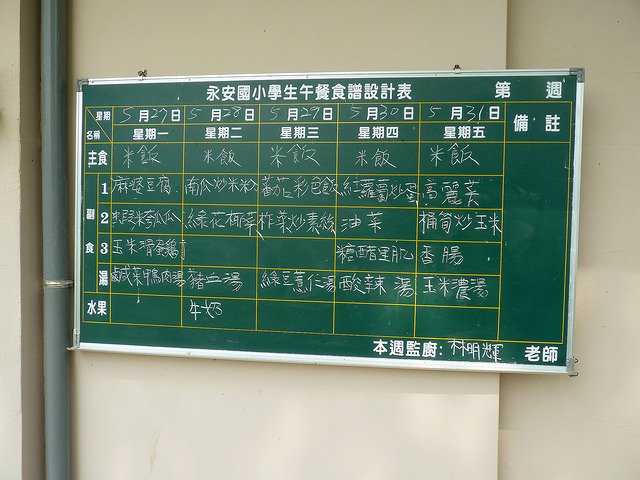 永安國小學生午餐食譜設計表 第 週
星期 5月27日 5月28日 5月29日 5月30日 5月31日 備註
名稱 星期一 星期二 星期三 星期四 星期五
主食 米飯 米飯 米飯 米飯 米飯
副食 1 麻婆豆腐 南瓜炒米粉 蕃茄 紅蘿蔔炒蛋 高麗菜
2 綠花椰菜 榨菜炒素 油菜 桶筍炒玉米
3 玉米滑蛋 糖醋里肌 香腸
湯 鹹菜鴨肉湯 豬血湯 綠豆薏仁湯 酸辣湯 玉米濃湯
水果 牛奶
本週監廚: 林明輝 老師